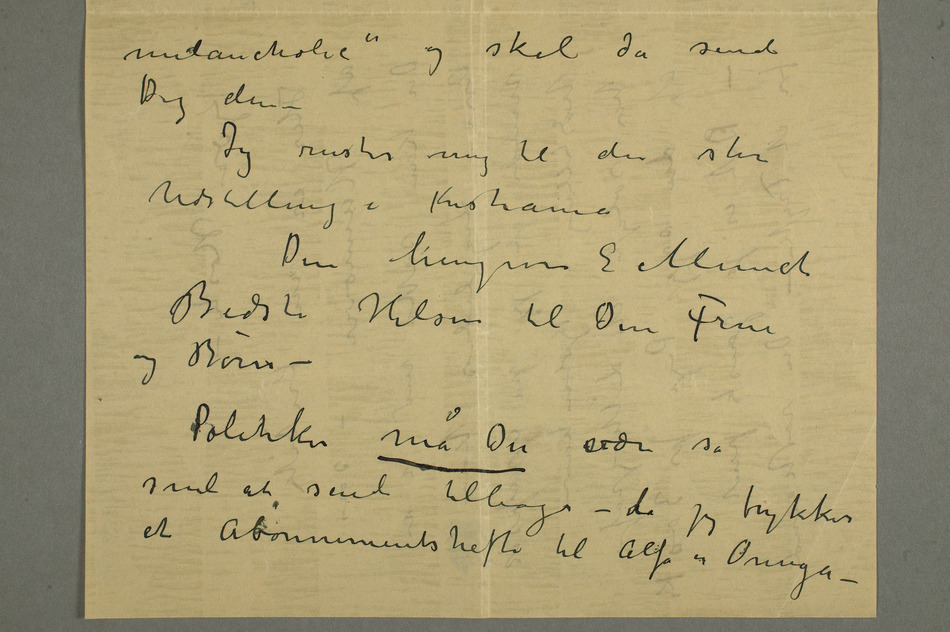 melancholie" og skal da sende
Dig den –
Jeg ruster mig til den store
Udstilling i Kristiania
Din hengivne E Munch
Bedste Hilsen til Din Frue
og Børn –
Politiken må Du være så
snil at sende tilbage – da jeg trykker
et Abonnementshefte til Alfa og Omega –